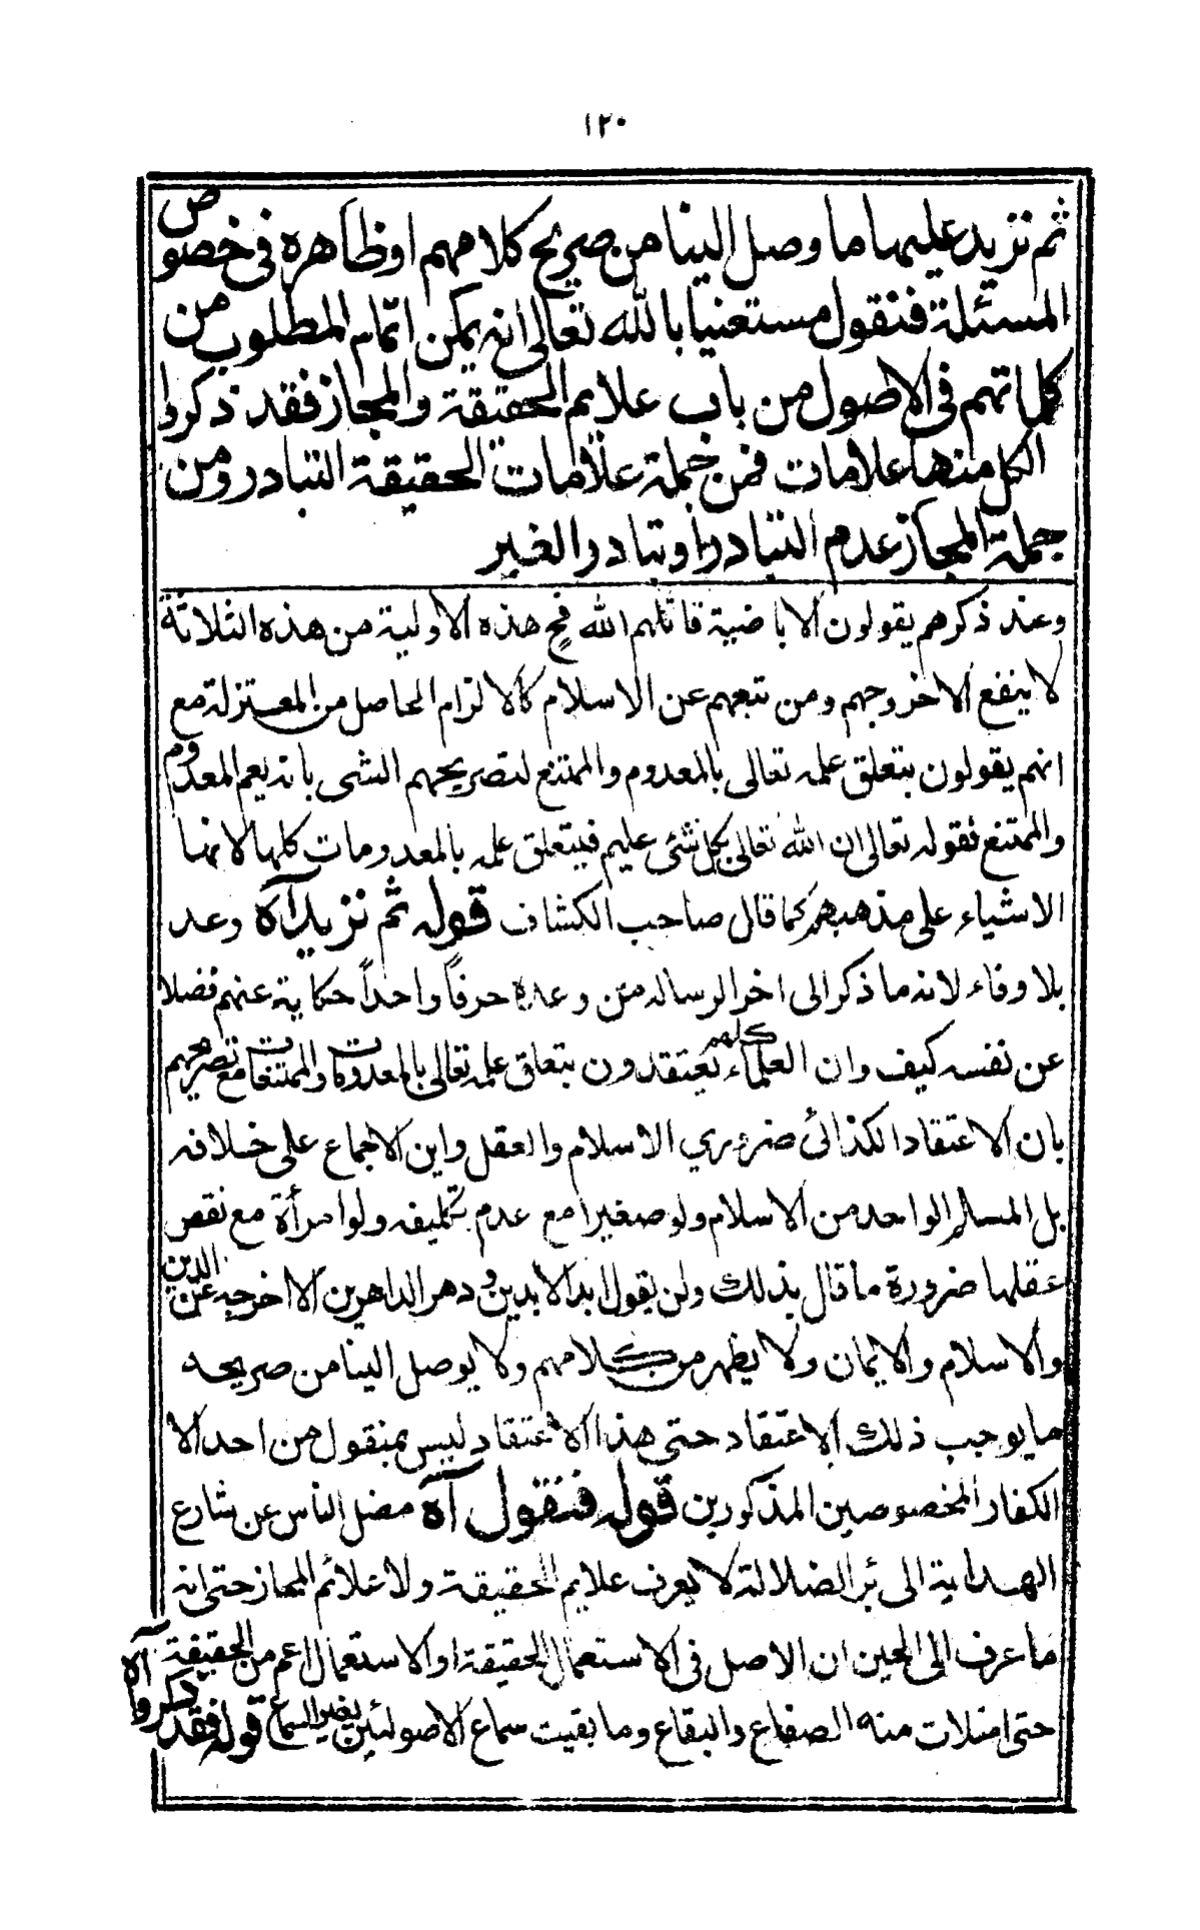 ١٢٠
ثم نزيد عليها ما وصل الينا من صريح كلامهم او ظاهره فى خصوص
المسئلة فنقول مستعنيا بالله تعالى انه يمكن اتمام المطلوب من
كلماتهم فى الاصول من باب علايم الحقيقة والمجاز فقد ذكروا
الكل منها علامات فمن جملة علامات الحقيقة التبادر ومن
جملة المجاز عدم التبادر او تبادر الغير
وعند ذكرهم يقولون الاباضية قاتلهم الله فح هذه الاولية من هذه الثلاثة
لا ينفع الا خروجهم ومن تبعهم عن الاسلام كالالزام الحاصل من المعتزلة مع
انهم يقولون بتعلق علمه تعالى بالمعدوم والممتنع لتصريحهم الشى بانه يعم المعدوم
والممتنع فقوله تعالى ان الله تعالى بكل شئى عليم فيتعلق علمه بالمعدومات كلها لانها
الاشياء على مذهبهم كما قال صاحب الكشاف قوله ثم نزيد آه وعد
بلا وفاء لانه ما ذكر الى اخر الرساله من وعده حرفاً واحداً حكاية عنهم فضلا
عن نفسه كيف وان العلماء كلهم يعتقدون بتعلق علمه تعالى بالمعدومات والممتنعات مع تصريحهم
بان الاعتقاد الكذائى ضروري الاسلام والعقل واين الاجماع على خلافه
بل المسلم الواحد من الاسلام ولو صغيرا مع عدم تكليفه ولو امرأة مع نقص
عقلها ضرورة ما قال بذلك ولن يقول ابد الابدين و دهر الداهرين الا اخرجه عن الدين
والاسلام والايمان ولا يظهر من كلامهم ولا يوصل الينا من صريحه
ما يوجب ذلك الاعتقاد حتى هذا الاعتقاد ليس بمنقول من احد الا
الكفار المخصوصين المذكورين قوله فنقول آه مضل الناس عن شارع
الهداية الى بئر الضلالة لا يعرف علايم الحقيقة ولا علائم المجاز حتى انه
ما عرف الى الحين ان الاصل فى الاستعمال الحقيقة او الاستعمال اعم من الحقيقة
حتى امتلات منه الصفاع والبقاع وما بقيت سماع الاصولئين بغير السماع قوله فقد ذكروا آه